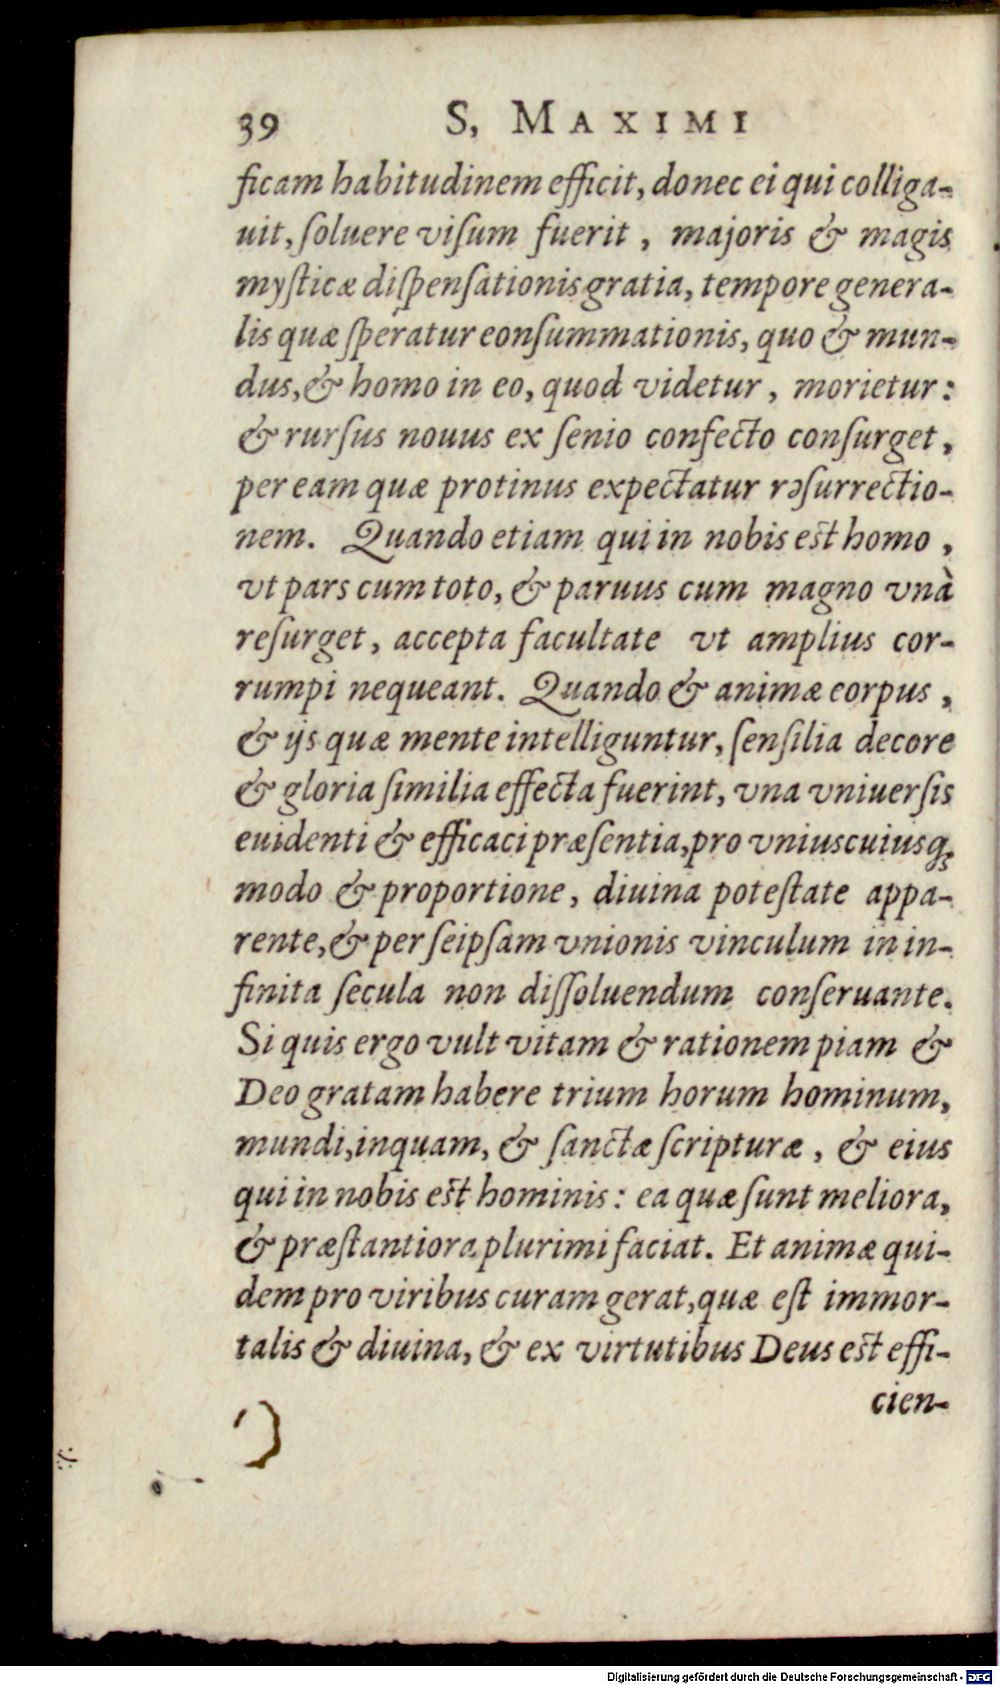 39 S, MAXIMI
ficam habitudinem efficit, donec ei qui colliga-
uit, ſoluere viſum fuerit, majoris & magis
myſticæ diſpenſationis gratia, tempore genera-
lis quæ ſperatur eonſummationis, quo & mun-
dus, & homo in eo, quod videtur, morietur:
& rurſus nouus ex ſenio confecto conſurget,
per eam quæ protinus expectatur rɔſurrectio-
nem. Quando etiam qui in nobis est homo,
vt pars cum toto, & paruus cum magno vnà
reſurget, accepta facultate vt amplius cor-
rumpi nequeant. Quando & animæ eorpus,
& ijs quæ mente intelliguntur, ſenſilia decore
& gloria ſimilia effecta fuerint, vna vniuerſis
euidenti & efficaci præſentia, pro vniuscuiusq́;
modo & proportione, diuina poteſtate appa-
rente, & per ſeipſam vnionis vinculum in in-
finita ſecula non diſſoluendum conſeruante.
Si quis ergo vult vitam & rationem piam &
Deo gratam habere trium horum hominum,
mundi, inquam, & ſanctæ ſcripturæ, & eius
qui in nobis est hominis: ea quæ ſunt meliora,
& præſtantiora plurimi faciat. Et animæ qui-
dem pro viribus curam gerat, quæ eſt immor-
talis & diuina, & ex virtutibus Deus est effi-
cien-
Digitalisierung gefördert durch die Deutsche Forschungsgemeinschaft - DFG